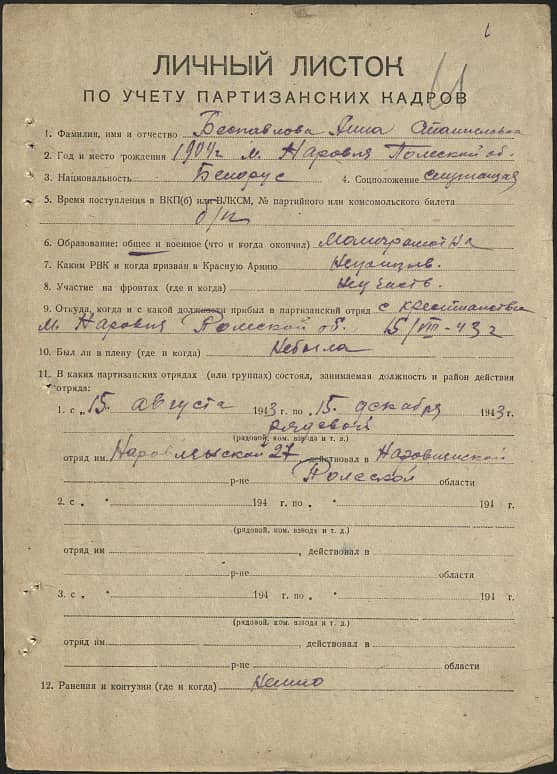 ЛИЧНЫЙ ЛИСТОК
ПО УЧЕТУ ПАРТИЗАНСКИХ КАДРОВ
1. Фамилия, имя и отчество Беспавлова Анна Станиславна
2. Год и место рождения 1904г м. Наровля Полеской об.
3. Национальность Белорус 4. Соцположение служащая
5. Время поступления в ВКП(б) или ВЛКСМ, № партийного или комсомольского билета
б/п
6. Образование: общее и военное (что и когда окончил) Малограмотна
7. Каким РВК и когда призван в Красную Армию
8. Участие на фронтах (где и когда) Не участв.
9. Откуда, когда и с какой должности прибыл в партизанский отряд с крестианства
м. Наровля Полеской об. 15/VIII-43г
10. Был ли в плену (где и когда) Небыла
11. В каких партизанских отрядах (или группах) состоял, занимаемая должность и район действия
отряда:
1. с „15. августа 1943 г. по „15. декабря 1943 г.
рядевой
(рядовой, ком. взвода и т. д.)
отряд им. Наровлянской 27 действовал в
р-не Полеской области
2. с „ “ 194 г. по „ “ 194 г.
(рядовой, ком. взвода и т. д.)
отряд им , действовал в
р-не области
3. с „ “ 194 г. по „ “ 194 г.
(рядовой, ком. взвода и т. д.)
отряд им , действовал в
р-не области
12. Ранения и контузии (где и когда)